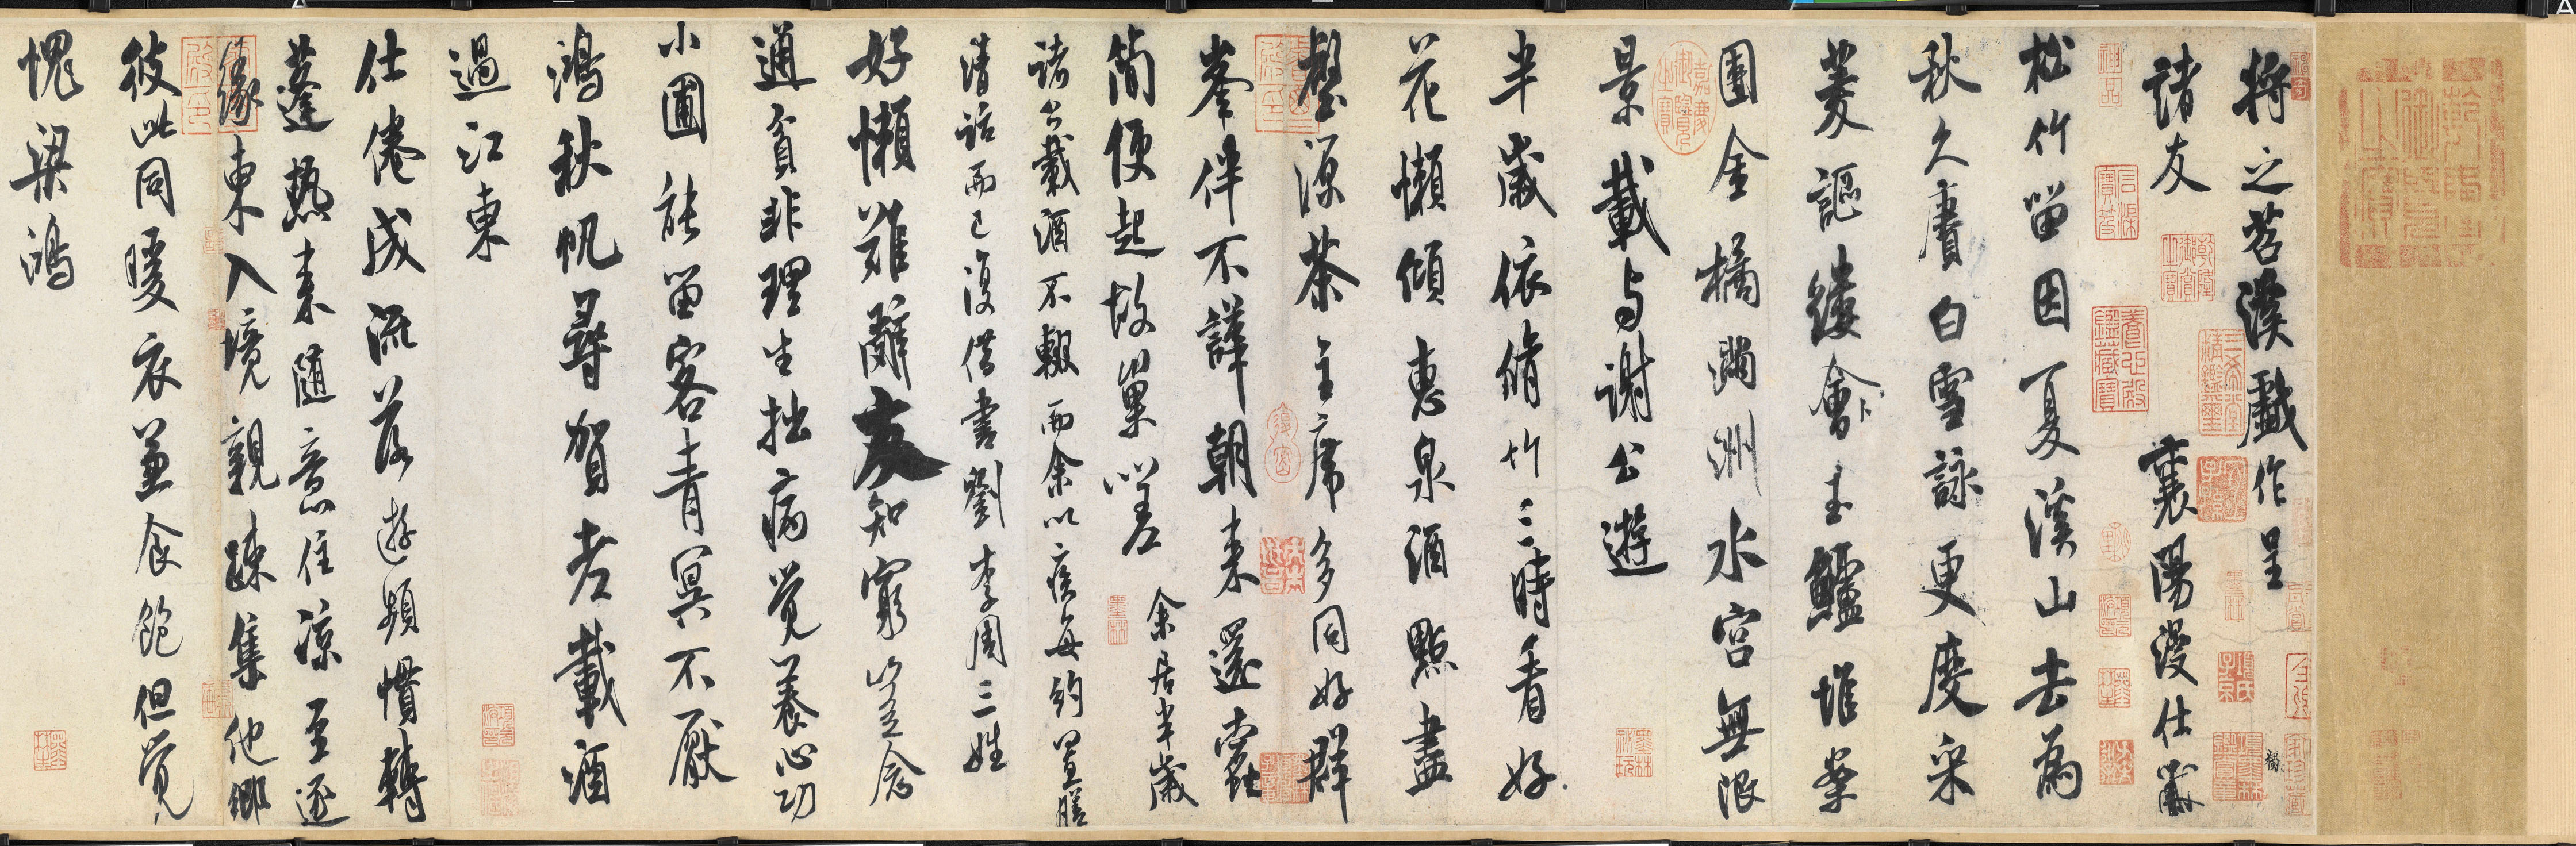 將之苕溪戲作呈
諸友 襄陽漫仕黻
松竹留因夏溪山去為
秋久賡白雪詠更度采
菱謳縷會玉鱸堆案
團金橘滿洲水宮無限
景載與謝公遊
半歲依脩竹三時看好
花懶傾惠泉酒點盡
壑源茶主席多同好群
峯伴不譁朝來還蠹
簡便起故巢嗟 余居半歲
諸公載酒不輟而余以疾每約置膳
清話而已復借書劉李周三姓
好懶難辭友知窮豈念
通貧非理生拙病覺養心功
小圃能留客青冥不厭
鴻秋帆尋賀老載酒
過江東
仕倦成流落遊頻慣轉
蓬熱來隨意住涼至逐
緣東入境親疎集他鄉
彼此同暖衣兼食飽但覺
愧梁鴻
嘉慶御覽之寶
乾隆御覽之寶
乾隆御賞之寶
石渠寶笈
養心殿鑑藏寶
三希堂精鑑璽